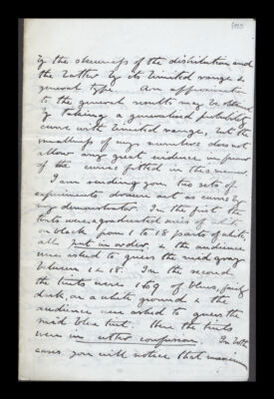 by the skewness of the distribution and
the latter by its limited range &
general type. An approximation
to the general results may be obtained
by taking a generalised probability
curve with limited range, but the
smallness of my numbers does not
allow any great evidence in favour
of the curves fitted in this manner.
I am sending you two sets of
experiments
my demonstrator. In the first the
tints were a graduated series of
on black from 1 to 18 parts of white,
all put in order, & the audience
was asked to guess the mid gray
between 1 & 18. In the second
the tints were 1 to 9 of blues, fairly
dark, on a white ground & the
audience were asked to guess the
mid blue tint. Here the tints
were in utter confusion. In both
cases you will notice that